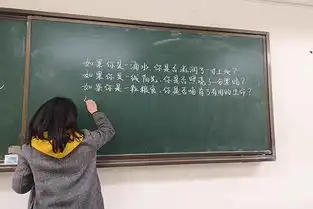 如果你是一滴水，你是否滋润了一寸土地？
如果你是一线阳光，你是否照亮了一分黑暗？
如果你是一粒粮食，你是否哺育了有用的生命？